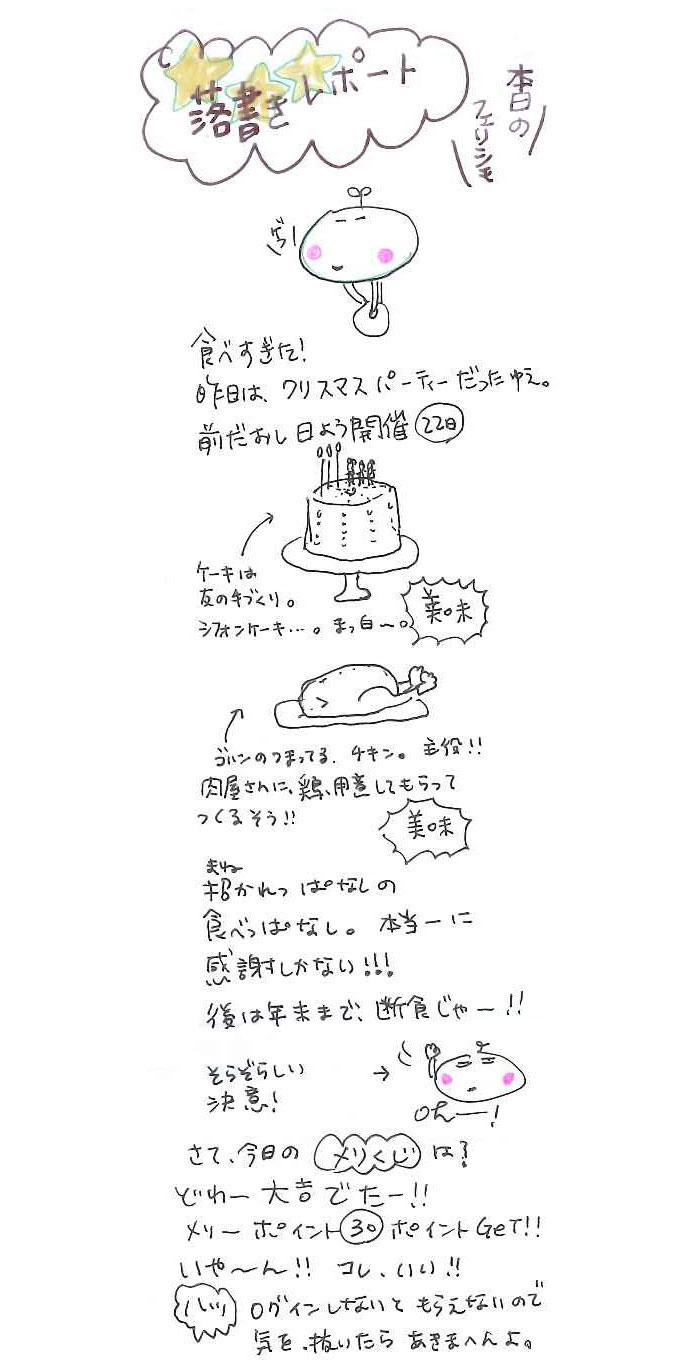 落書きレポート
本日の
フェリシモ
ゲプー
食べすぎた!
昨日は、クリスマスパーティーだったゆえ。
前だおし日よう開催 22日
ケーキは
友の手づくり。
シフォンケーキ…。まっ白〜。
美味
ゴハンのつまってる、チキン。主役!!
肉屋さんに、鶏、用意してもらって
つくるそう!!
美味
まね
招かれっぱなしの
食べっぱなし。本当ーに
感謝しかない!!!
後は年末まで、断食じゃー!!
そらぞらしい →
決意!
さて、今日の メリくじ は?
どわー 大吉でたー!!
メリーポイント 30 ポイントGeT!!
いや〜ん!! コレ、いい!!
ログインしないともらえないので
気を、抜いたらあきまへんよ。